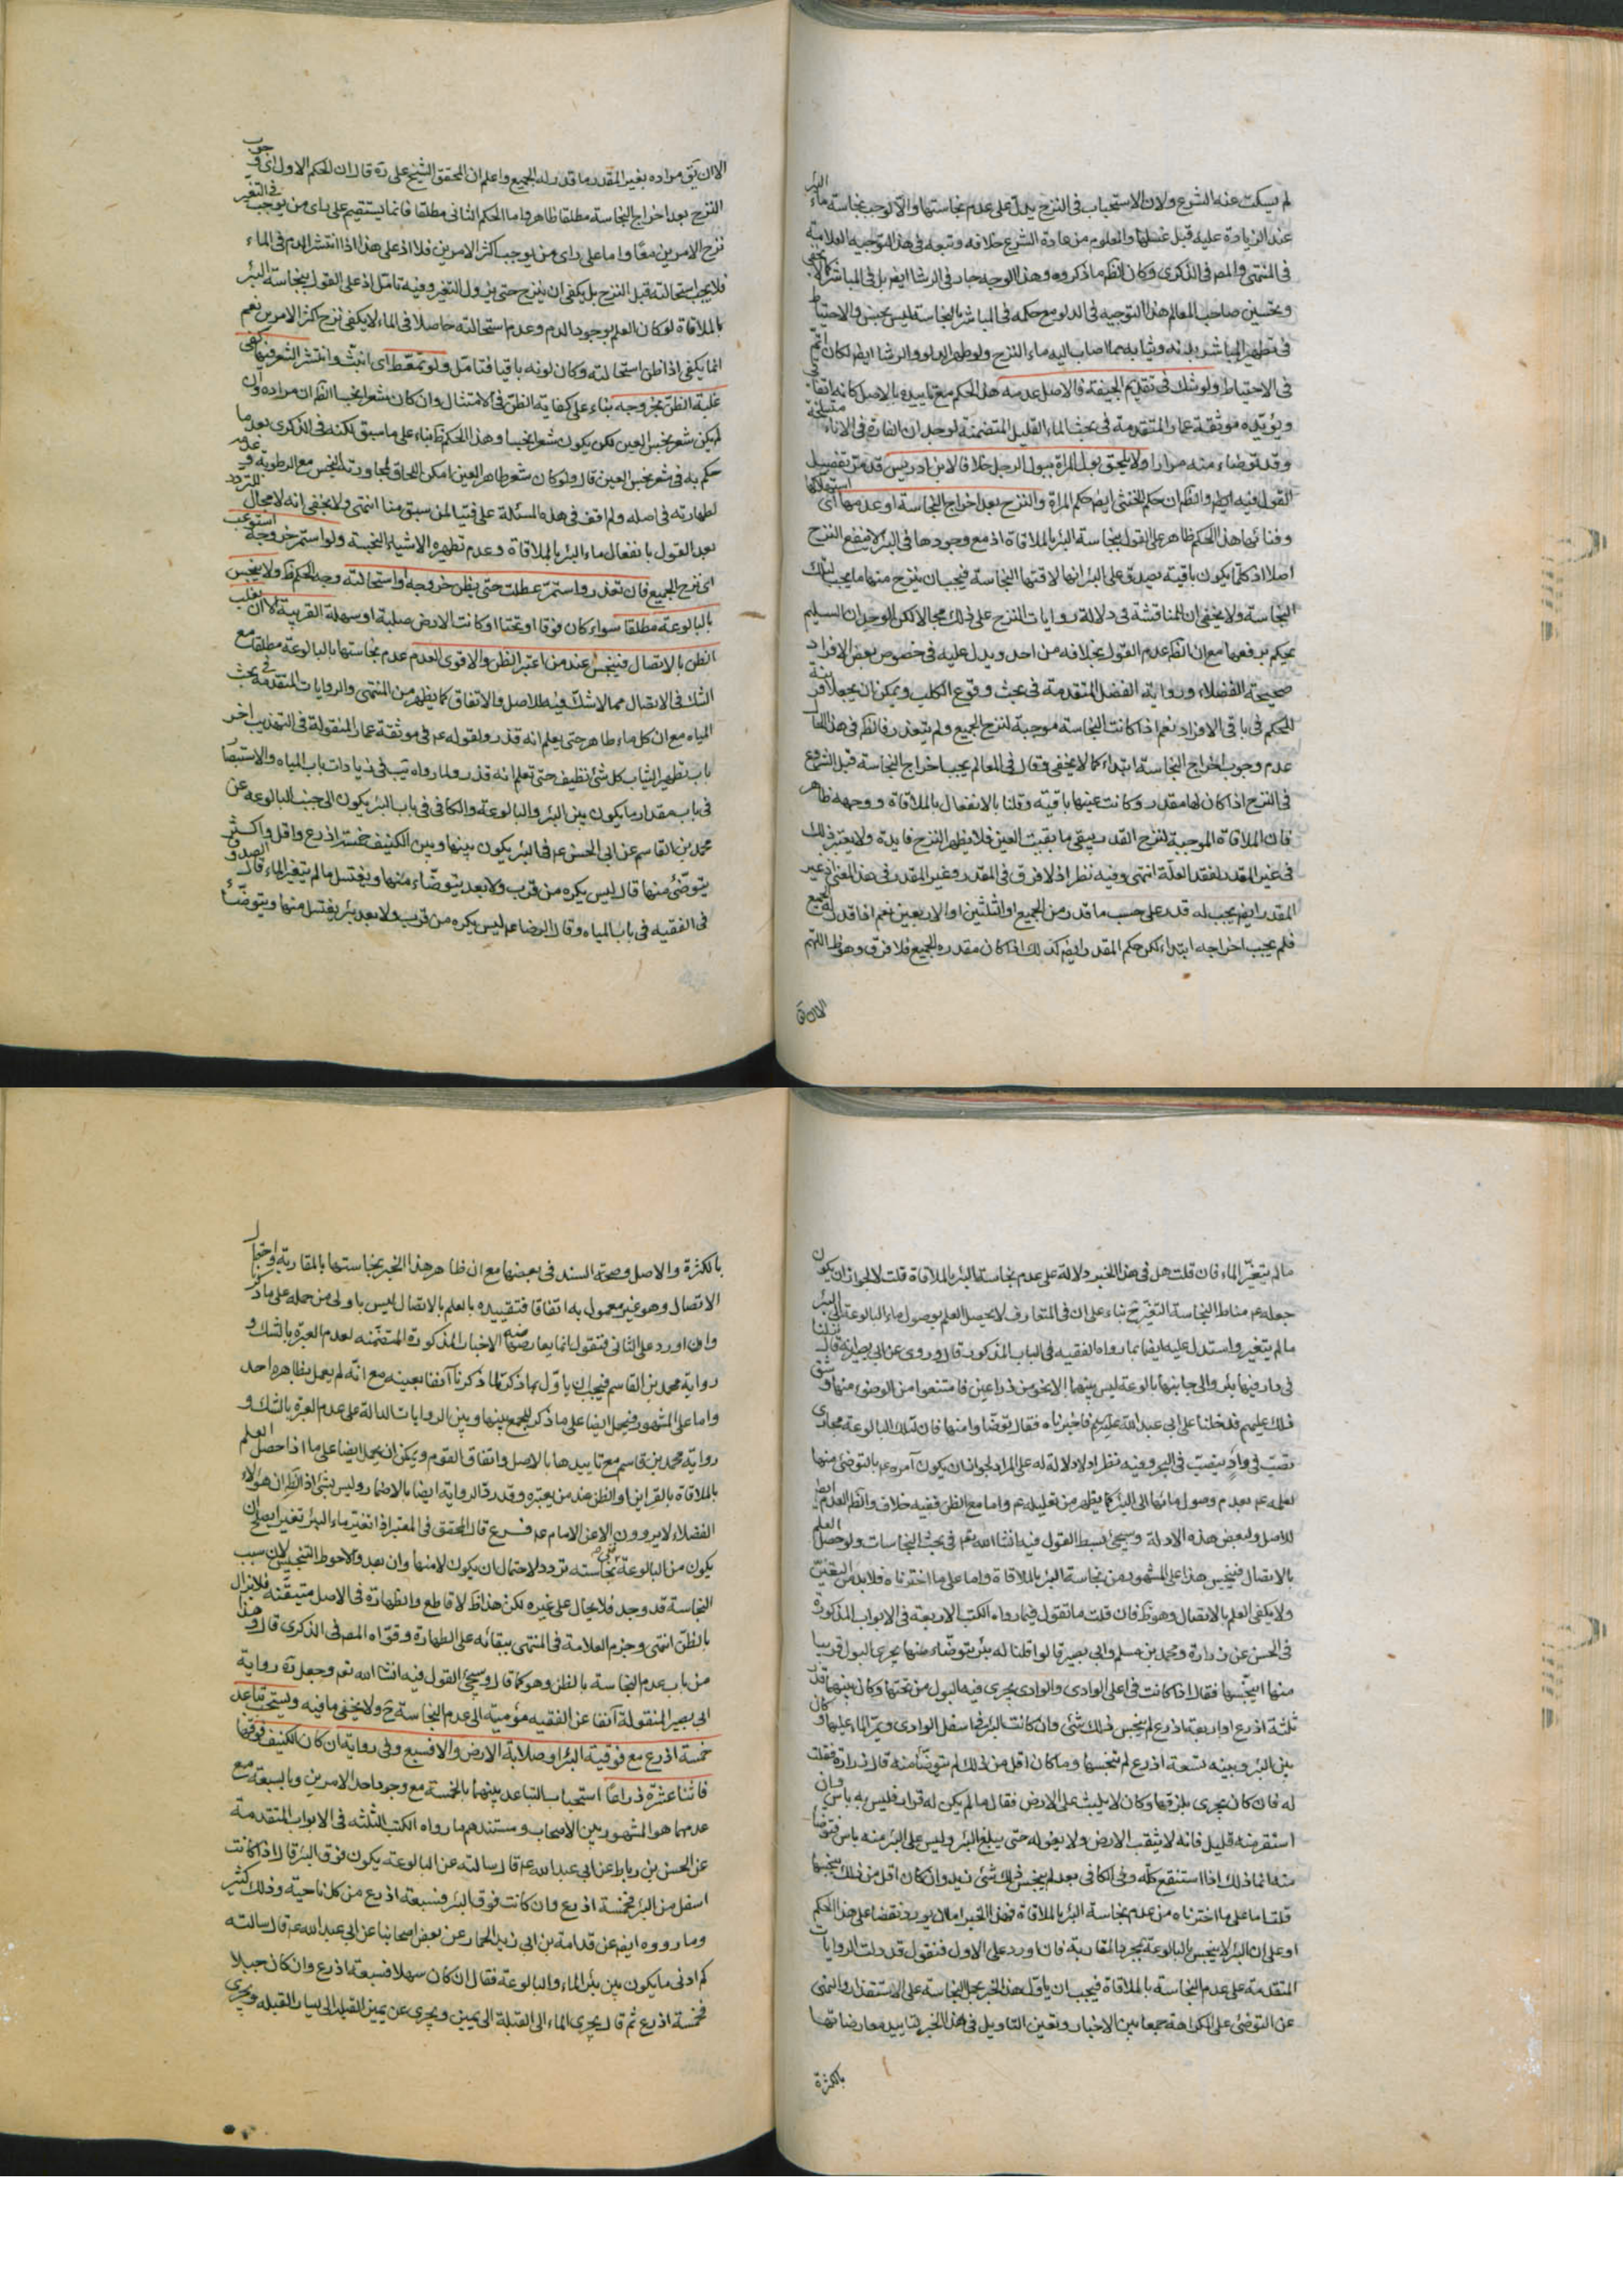 لم يسكت عنه الشرع ولان الاستحباب في النزح يدل على عدم نجاستها والا لوجب نجاسة ماء البئر
عند الزيادة عليه قبل غسلها والمعلوم من عادة الشرع خلافه وتبعه في هذا التوجيه العلامة
في المنتهى والمص في الذكرى وكان انظم ما ذكروه وهذا الوجه جار في الرشا ايضم بل في المباشر كما لا يخفى
وتحسين صاحب المعالم هذا التوجيه في الدلو مع حكمه في المباشر بالنجاسة ليس بحسن والاحتياط
في تطهير المباشر بدنه وثيابه مما اصاب اليه ماء النزح ولو طهر الدلو والرشا ايضا لكان اتم
في الاحتياط ولو شك في تقديم الجيفة فالاصل عدمه هذا الحكم مع تاييده بالاصل كانه اتفاقي
ويؤيده موثقة عمار المتقدمة في بحث الماء القليل المتضمنة لوجدان الفارة في الاناء متسلخة
وقد توضاء منه مرارا ولا يلحق بول المراة ببول الرجل خلافا لابن ادريس قد مر تفصيل
القول فيه ايضم وانظم ان حكم الخنثى ايضم حكم المراة والنزح بعد اخراج النجاسة او عدمها اي استهلاكها
وفنائها هذا الحكم ظاهر على القول بنجاسة البئر بالملاقاة اذ مع وجودها في البئر لا ينفع النزح
اصلا اذ كلما يكون باقية يصدق على البئر انها لاقتها النجاسة فيجب ان ينزح منها ما يجب لتلك
النجاسة ولا يخفى ان للمناقشة في دلالة روايات النزح على ذلك مجالا لكن الوجدان السليم
يحكم برفعها مع ان انظم عدم القول بخلافه من احد ويدل عليه في خصوص بعض الافراد
صحيحة الفضلاء ورواية الفضل المتقدمة في بحث وقوع الكلب ويمكن ان يجعلا قرينة
للحكم في باقي الافراد نعم اذا كانت النجاسة موجبة لنزح الجميع ولم يتعذر فانظم في هذا الحال
عدم وجوب اخراج النجاسة ابتداء كما لا يخفى وقال في المعالم يجب اخراج النجاسة قبل الشروع
في النزح اذا كان لها مقدر وكانت عينها باقية وقلنا بالانفعال بالملاقاة ووجهه ظاهر
فان الملاقاة الموجبة لنزح القدر يبقى ما بقيت العين فلا يظهر للنزح فايدة ولا يعتبر ذلك
في غير المقدر لفقد العلة انتهى وفيه نظر اذ لا فرق في المقدر وغير المقدر في هذا المعنى اذ غير
المقدر ايضم يجب له قدر على حسب ما قدر من الجميع او الثلثين او الاربعين نعم اذا قدر له الجميع
فلم يجب اخراجه ابتداء لكن حكم المقدر ايضم كذلك اذا كان مقدره الجميع فلا فرق وهو ظ اللهم
الا ان يق
الا ان يق مراده بغير المقدر ما قدر له الجميع واعلم ان المحقق الشيخ علي ره قال ان الحكم الاول اي وجوب
النزح بعد اخراج النجاسة مطلقا ظاهر واما الحكم الثاني مطلقا فانما يستقيم على راى من يوجب في التغير
نزح الامرين معا واما على راى من يوجب اكثر الامرين فلا اذ على هذا اذا انتشر الدم في الماء
فلا يجب استحالته قبل النزح بل يكفي ان ينزح حتى يزول التغير وفيه تامل اذ على القول بنجاسة البئر
بالملاقاة لو كان العلم بوجود الدم وعدم استحالته حاصلا في الماء لا يكفي نزح اكثر الامرين نعم
انما يكفي اذا ظن استحالته وكان لونه باقيا فتامل ولو تمعط اي انبث وانتشر الشعر فيها كفى
غلبة الظن بخروجه بناء على كفاية الظن في الامتثال وان كان شعرا نجسا انظم ان مراده ان
لم يكن شعر نجس العين لكن يكون شعرا نجسا وهذا الحكم ظ بناء على ما سبق لكنه في الذكرى بعد ما
حكم به في شعر نجس العين قال ولو كان شعر طاهر العين امكن اللحاق لمجاورته النجس مع الرطوبة وعدمه
لطهارته في اصله ولم اقف في هذه المسئلة على فتيا لمن سبق منا انتهى ولا يخفى انه لا مجال للتردد
بعد القول بانفعال ماء البئر بالملاقاة وعدم تطهيره الاشياء النجسة ولو استمر خروجه استوعب
اي نزح الجميع فان تعذر واستمر عطلت حتى يظن خروجه او استحالته وجه الحكم ظ ولا ينجس
بالبالوعة مطلقا سواء كان فوقا او تحتا او كانت الارض صلبة او سهلة القريبة الا ان يغلب
الظن بالاتصال فينجس عند من اعتبر الظن والاقوى العدم عدم نجاستها بالبالوعة مطلقا مع
الشك في الاتصال مما لا شك فيه للاصل والاتفاق كما يظهر من المنتهى والروايات المتقدمة في بحث
المياه مع ان كل ماء طاهر حتى يعلم انه قذر ولقوله عم في موثقة عمار المنقولة في التهذيب اخر
باب تطهير الثياب كل شئ نظيف حتى تعلم انه قذر ولما رواه يب في زيادات باب المياه والاستبصار
في باب مقدار ما يكون بين البئر والبالوعة والكافي في باب البئر يكون الى جنب البالوعة عن
محمد بن القاسم عن ابي الحسن عم في البئر يكون بينها وبين الكنيف خمسة اذرع واقل واكثر
يتوضئ منها قال ليس يكره من قرب ولا بعد يتوضاء منها ويغتسل ما لم يتغير الماء قال الصدوق
في الفقيه في باب المياه وقال الرضا عم ليس يكره من قرب ولا بعد بئر يغتسل منها ويتوضأ
ما لم يتغير الماء فان قلت هل في هذا الخبر دلالة على عدم نجاسة البئر بالملاقاة قلت لا لجواز ان يكون
جعله عم مناط النجاسة التغير ح بناء على ان في المتعارف لا يحصل العلم بوصول ماء البالوعة الى البئر
ما لم يتغير واستدل عليه ايضا بما رواه الفقيه في الباب المذكور قال وروى عن ابي بصير انه قال نزلنا
في دار فيها بئر والى جانبها بالوعة ليس بينهما الا نحو من ذراعين فامتنعوا من الوضوء منها وشق
ذلك عليهم فدخلنا على ابي عبد الله عليه السلام فاخبرناه فقال توضأوا منها فان لتلك البالوعة مجاري
تصب في واد ينصب في البحر وفيه نظر اذ لا دلالة له على المراد لجواز ان يكون آمره عم بالتوضئ منها
لعلمه عم بعدم وصول مائها الى البئر كما يظهر من تعليله عم واما مع الظن ففيه خلاف وانظم العدم ايضا
للاصل ولبعض هذه الادلة وسيجئ بسط القول فيه انشاء الله تعم في بحث النجاسات ولو حصل العلم
بالاتصال فينجس هذا على المشهور من نجاسة البئر بالملاقاة واما على ما اخترناه فلا بد من التغيير
ولا يكفي العلم بالاتصال وهو ظ فان قلت ما تقول فيما رواه الكتب الاربعة في الابواب المذكورة
في الحسن عن زرارة ومحمد بن مسلم وابي بصير قالوا قلنا له بئر يتوضاء منها يجري البول قريبا
منها اينجسها فقال اذا كانت في اعلى الوادي والوادي يجري فيه البول من تحتها وكان بينهما قدر
ثلثة اذرع او اربعة اذرع لم ينجس ذلك شئ وان كانت البئر في اسفل الوادي ويمر الماء عليها وكان
بين البئر وبينه تسعة اذرع لم ينجسها وما كان اقل من ذلك لم يتوضأ منه قال زرارة فقلت
له فان كان يجري بلزقها وكان لا يلبث على الارض فقال ما لم يكن له قرار فليس به باس وان
استقر منه قليل فانه لا يثقب الارض ولا يغوله حتى يبلغ البئر وليس على البئر منه باس فتوضأ
منه انما ذلك اذا استنقع كله وفي الكافي بعد لم ينجس ذلك شئ زيد وان كان اقل من ذلك ينجسها
قلت اما على ما اخترناه من عدم نجاسة البئر بالملاقاة فهذا الخبر اما ان يورد نقضا على هذا الحكم
او على ان البئر لا ينجس بالبالوعة بمجرد المقاربة فان اورد على الاول فنقول قد دلت الروايات
المتقدمة على عدم النجاسة بالملاقاة فيجب ان ياول هذا الخبر بحمل النجاسة على الاستقذار والنهي
عن التوضئ على الكراهة جمعا بين الاخبار وتعين التاويل في هذا الخبر لتاييد معارضاتها
بالكثرة
بالكثرة والاصل وصحة السند في بعضها مع ان ظاهر هذا الخبر نجاستها بالمقاربة واحتمال
الاتصال وهو غير معمول به اتفاقا فتقييده بالعلم بالاتصال ليس باولى من حمله على ما ذكر
وان اورد على الثاني فنقول انما يعارضها الاخبار المذكورة المتضمنة لعدم العبرة بالشك و
رواية محمد بن القاسم فيجب ان ياول بما ذكر لما ذكرنا آنفا بعينه مع انه لم يعمل بظاهره احد
واما على المشهور فيحمل ايضا على ما ذكر للجمع بينها وبين الروايات الدالة على عدم العبرة بالشك و
رواية محمد بن قاسم مع تاييدها بالاصل واتفاق القوم ويمكن ان يحمل ايضا على ما اذا حصل العلم
بالملاقاة بالقراين او الظن عند من يعتبره وقد رد الرواية ايضا بالاضمار وليس بشئ اذ الظ ان هؤلاء
الفضلاء لا يروون الا عن الامام عم فرع قال المحقق في المعتبر اذا تغير ماء البئر تغيرا يصلح ان
يكون من البالوعة ففي نجاسته تردد لاحتمال ان يكون لا منها وان بعد والاحوط التنجيس لان سبب
النجاسة قد وجد فلا يحال على غيره لكن هذا ظ لا قاطع والطهارة في الاصل متيقنة فلا يزال
بالظن انتهى وجزم العلامة في المنتهى ببقائه على الطهارة وقواه المص في الذكرى قال وهذا
من باب عدم النجاسة بالظن وهو كما قال وسيجئ القول فيه انشا الله تعم وجعل ره رواية
ابي بصير المنقولة آنفا عن الفقيه مؤمية الى عدم النجاسة ح ولا يخفى ما فيه ويستحب تباعد
خمسة اذرع مع فوقية البئر او صلابة الارض والا فسبع وفي رواية ان كان الكنيف فوقها
فاثنا عشرة ذراعا استحباب التباعد بينهما بالخمسة مع وجود احد الامرين وبالسبعة مع
عدمهما هو المشهور بين الاصحاب ومستندهم ما رواه الكتب الثلثة في الابواب المتقدمة
عن الحسن بن رباط عن ابي عبد الله عم قال سالته عن البالوعة يكون فوق البئر قال اذا كانت
اسفل من البئر فخمسة اذرع وان كانت فوق البئر فسبعة اذرع من كل ناحية وذلك كثير
وما رووه ايضم عن قدامة بن ابي زيد الحمار عن بعض اصحابنا عن ابي عبد الله عم قال سالته
كم ادنى ما يكون بين بئر الماء والبالوعة فقال ان كان سهلا فسبعة اذرع وان كان جبلا
فخمسة اذرع ثم قال يجري الماء الى القبلة الى يمين ويجري عن يمين القبلة الى يسار القبلة ويجري